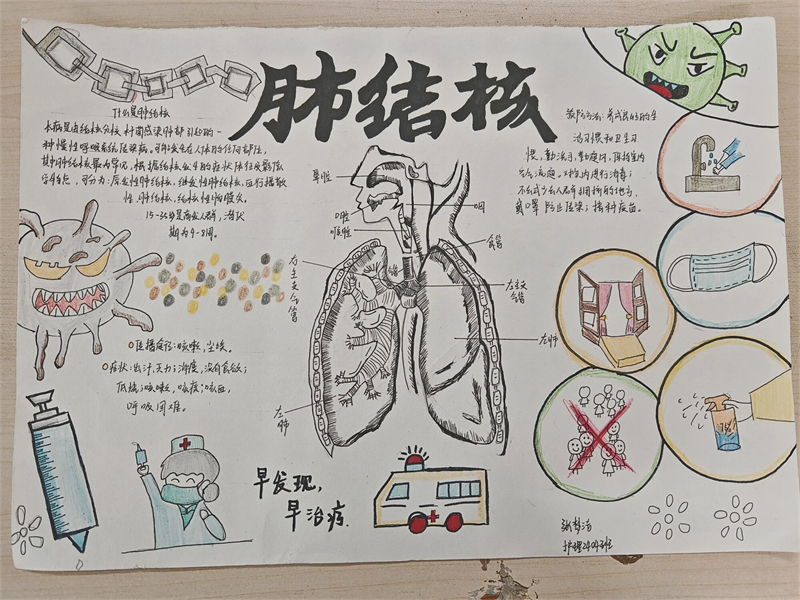 肺结核
什么是肺结核
本病是由结核分枝杆菌感染肺部引起的一
种慢性呼吸系统传染病。可以发生在人体的任何部位，
其中肺结核最为常见，根据结核发生的症状体征及影像
学特点，可分为：原发性肺结核，继发性肺结核，血行播散
性肺结核，结核性胸膜炎。
15-35岁是高发人群，潜伏
期为4-8周。
传播途径：咳嗽，尘埃。
症状：出汗，乏力；消瘦，没有食欲；
低烧；咳嗽，咳痰；咳血，
呼吸困难。
预防方法：养成良好的生
活习惯和卫生习
惯，勤洗手，勤通风，保持室内
空气流通。对室内进行消毒；
不去或少去人群拥挤的地方，
戴口罩防止传染；接种疫苗。
鼻腔
口腔
喉腔
咽
食管
右主支
气管
左主支
气管
左肺
右肺
75%
早发现，
早治疗
护理2404班